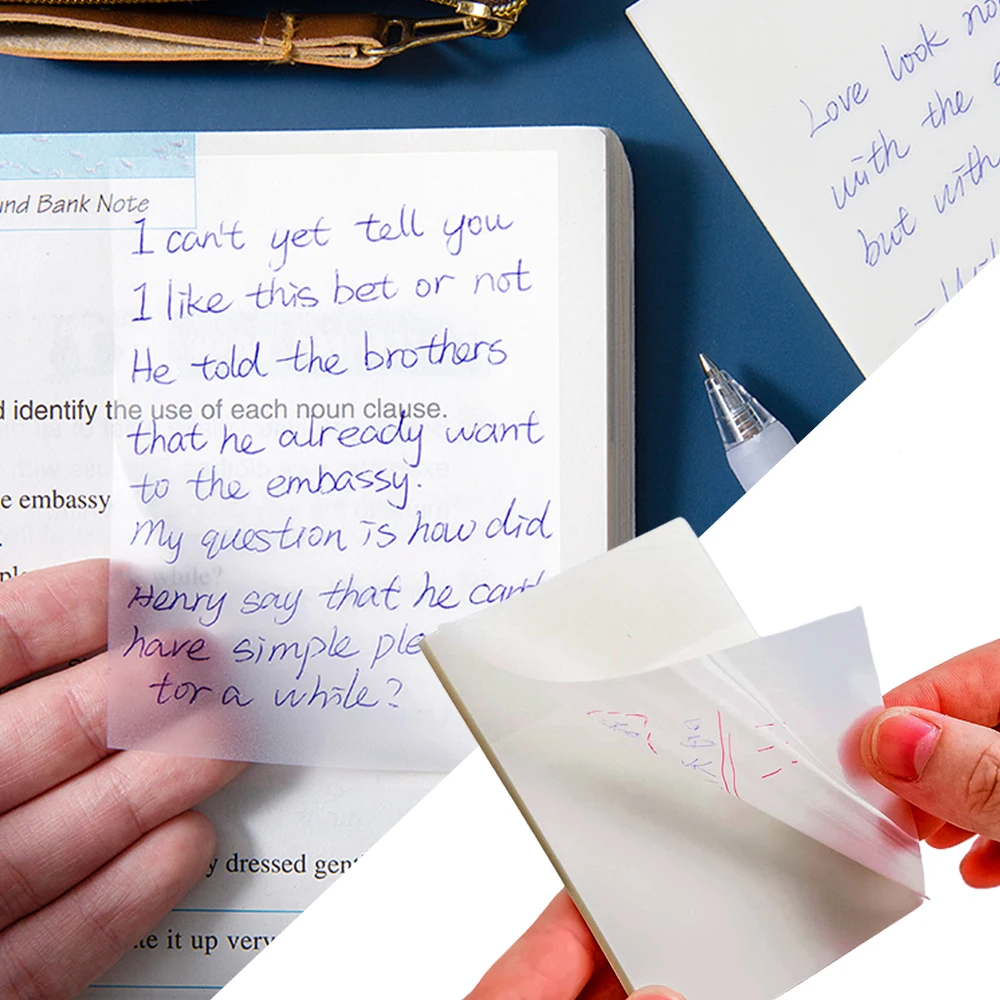 und Bank Note
I can't yet tell you
I like this bet or not
He told the brothers
d identify the use of each noun clause.
that he already want
to the embassy.
e embassy
My question is how did
while?
Henry say that he can't
have simple ple
for a while?
y dressed gent
te it up very
Love look no
with the e
but with